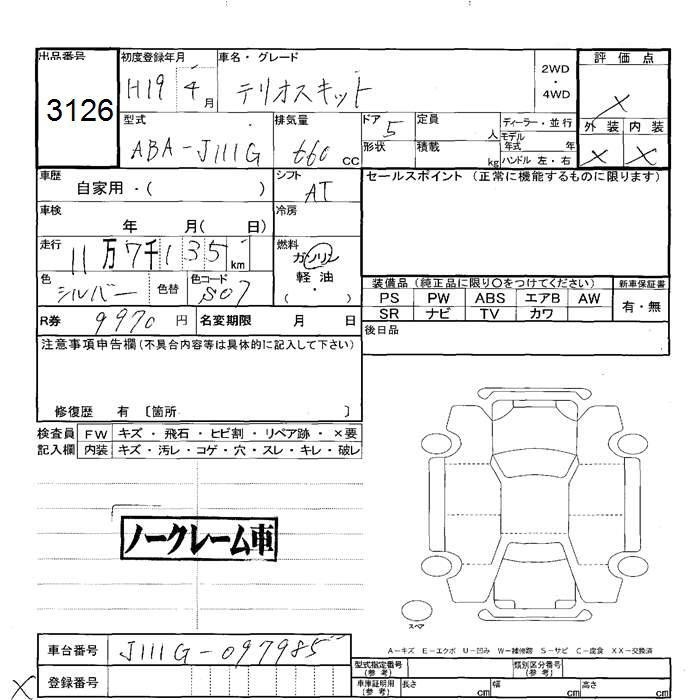 出品番号 初度登録年月 車名・グレード 2WD・4WD 評価点
3126 H19 4月 テリオスキット X
型式 排気量 ドア 定員 ディーラー・並行 外装 内装
ABA-J111G 660cc 5 人 モデル年式 年 X X
形状 積載 kg ハンドル 左・右
車歴 自家用・( ) シフト AT セールスポイント (正常に機能するものに限ります)
車検 年 月( 日) 冷房
走行 11万7千135km 燃料 ガソリン 軽油 ( ・ )
色 シルバー 色替 色コード S07
装備品 (純正品に限り○をつけてください) 新車保証書
PS PW ABS エアB AW 有・無
SR ナビ TV カワ
R券 9970円 名変期限 月 日 後日品
注意事項申告欄(不具合内容等は具体的に記入して下さい)
修復歴 有 〔箇所 〕
検査員 FW キズ・飛石・ヒビ割・リペア跡・×要
記入欄 内装 キズ・汚レ・コゲ・穴・スレ・キレ・破レ
ノークレーム車
スペア
A-キズ E-エクボ U-凹み W-補修跡 S-サビ C-腐食 XX-交換済
車台番号 J111G-097985
型式指定番号(参考) 類別区分番号(参考)
X 登録番号
車庫証明用(参考) 長さ cm 幅 cm 高さ cm